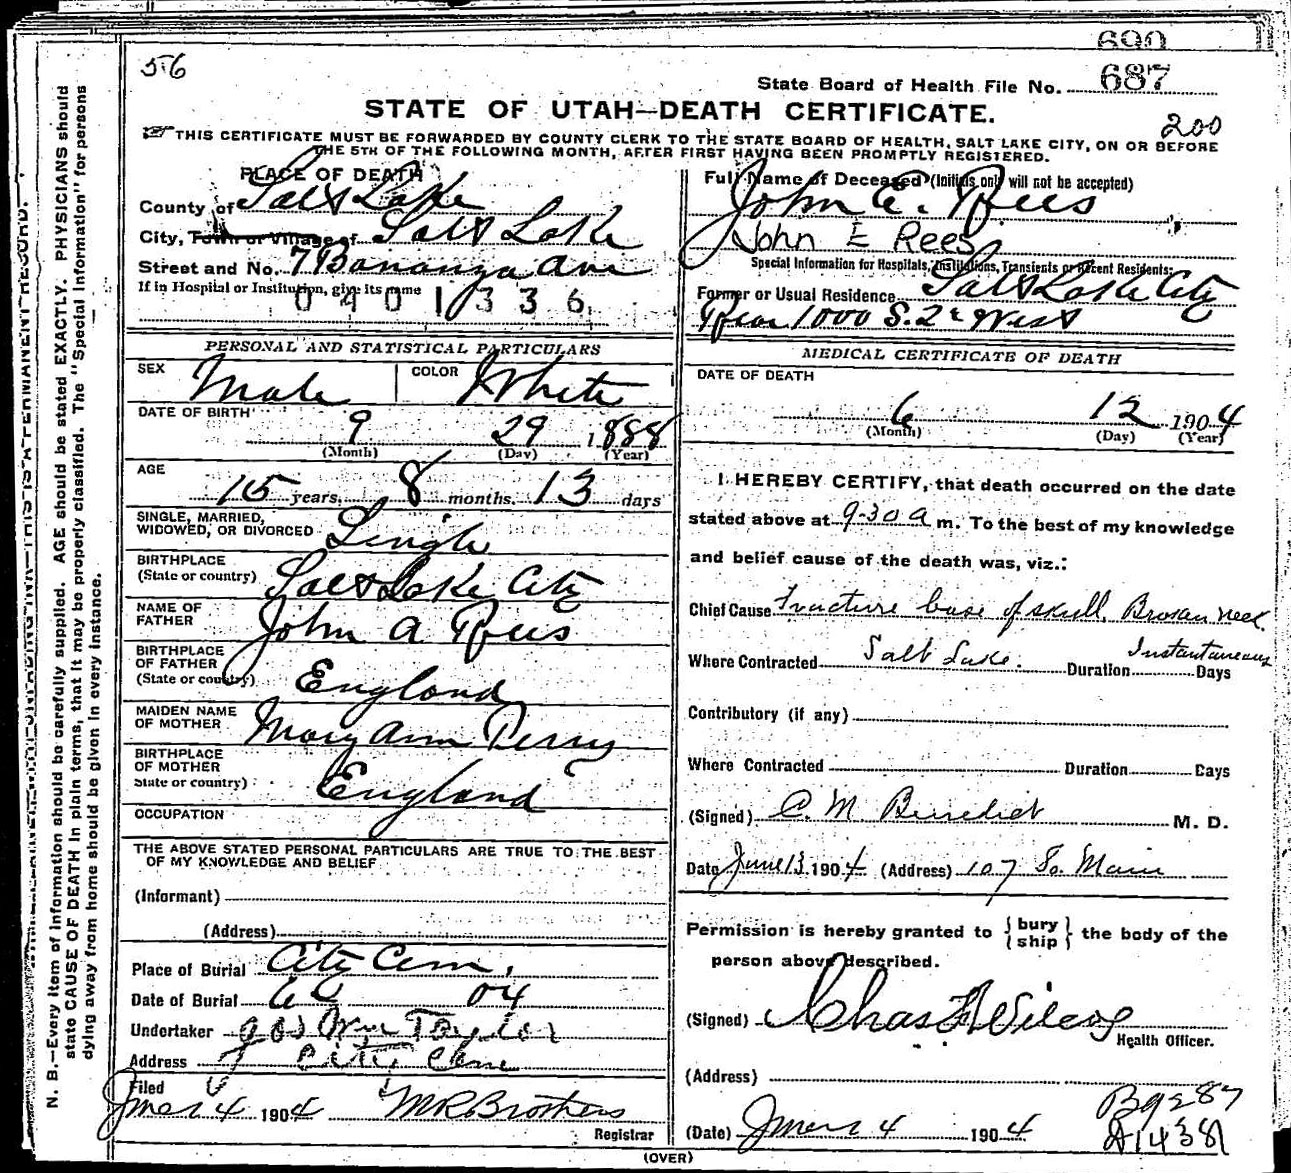 690
56
State Board of Health File No. 687
STATE OF UTAH—DEATH CERTIFICATE.
200
THIS CERTIFICATE MUST BE FORWARDED BY COUNTY CLERK TO THE STATE BOARD OF HEALTH, SALT LAKE CITY, ON OR BEFORE
THE 5TH OF THE FOLLOWING MONTH, AFTER FIRST HAVING BEEN PROMPTLY REGISTERED.
PLACE OF DEATH
County of Salt Lake
City, Town or Village of Salt Lake
Street and No. 7 Bonanza Ave
If in Hospital or Institution, give its name
0401336
Full Name of Deceased (Initials only will not be accepted)
John E. Rees
John E Rees
Special Information for Hospitals, Institutions, Transients or Recent Residents:
Former or Usual Residence Salt Lake City
Rear 1000 S. 2d West
PERSONAL AND STATISTICAL PARTICULARS
SEX Male COLOR White
DATE OF BIRTH
9 29 1888
(Month) (Day) (Year)
AGE
15 years, 8 months, 13 days
SINGLE, MARRIED,
WIDOWED, OR DIVORCED Single
BIRTHPLACE
(State or country) Salt Lake City
NAME OF
FATHER John A Rees
BIRTHPLACE
OF FATHER
(State or country) England
MAIDEN NAME
OF MOTHER Mary Ann Perry
BIRTHPLACE
OF MOTHER
State or country) England
OCCUPATION
THE ABOVE STATED PERSONAL PARTICULARS ARE TRUE TO THE BEST
OF MY KNOWLEDGE AND BELIEF
(Informant)
(Address)
Place of Burial City Cem.
Date of Burial 6 04
Undertaker Jos Wm Taylor
Address City
Filed
4 1904 M R Brothers
Registrar
MEDICAL CERTIFICATE OF DEATH
DATE OF DEATH
6 12 1904
(Month) (Day) (Year)
I HEREBY CERTIFY, that death occurred on the date
stated above at 9-30 a m. To the best of my knowledge
and belief cause of the death was, viz.:
Chief Cause Fracture base of skull. Broken neck.
Where Contracted Salt Lake. Duration Instantaneous Days
Contributory (if any)
Where Contracted Duration Days
(Signed) C. M. Benedict M. D.
Date June 13 1904 (Address) 107 So. Main
Permission is hereby granted to {bury
ship} the body of the
person above described.
(Signed) Chas F Wilcox
Health Officer.
(Address)
B9287
(Date) 4 1904
A1438
(OVER)
N. B.—Every item of information should be carefully supplied. AGE should be stated EXACTLY. PHYSICIANS should
state CAUSE OF DEATH in plain terms, that it may be properly classified. The "Special Information" for persons
dying away from home should be given in every instance.
THIS IS A PERMANENT RECORD.